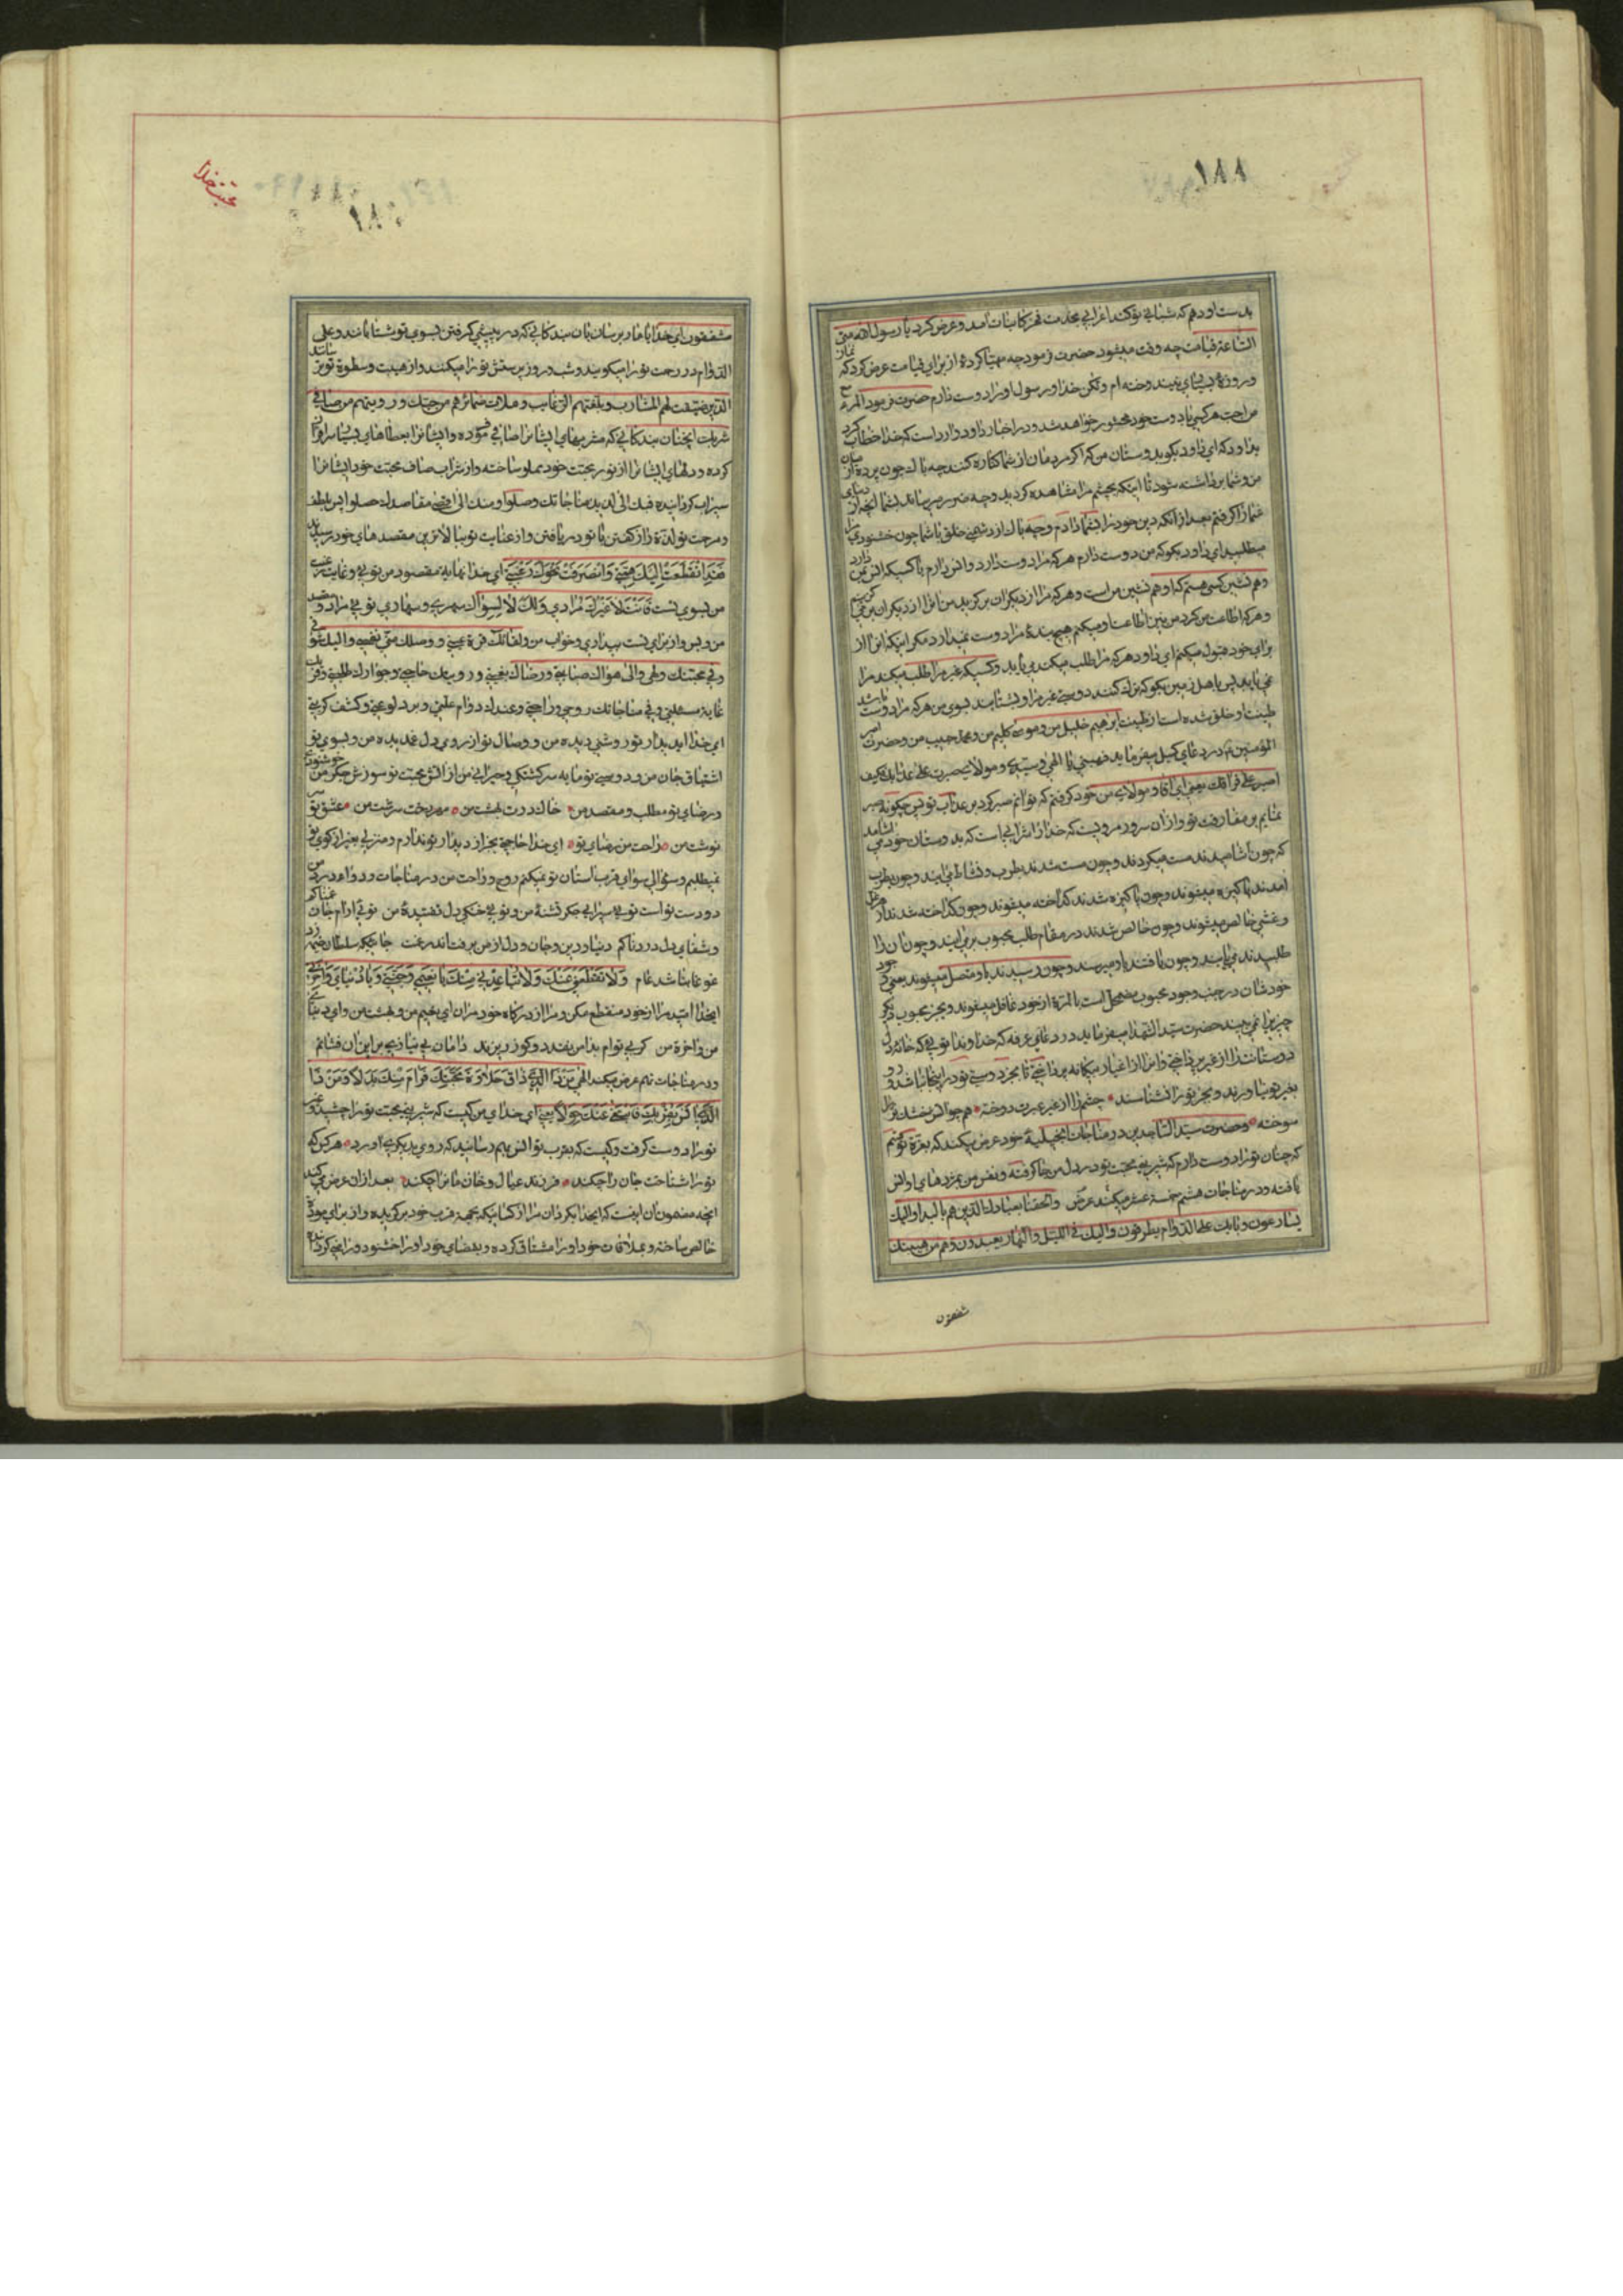 ۱۸۸
بدست او دهم که شبانی تو کند اعرابی بخدمت فخر کاینات آمد و عرض کرد یا رسول الله متی
الساعة قیامت چه وقت میشود حضرت فرمود چه مهیا کردهٔ از برای قیامت عرض کرد که نماز
و روزهٔ بسیاری نیندوخته ام ولکن خدا و رسول او را دوست دارم حضرت فرمود المرء مع
من احب هر کسی با دوست خود محشور خواهد شد و در اخبار داود وارد است که خدا خطاب کرد
بداود که ای داود بگو بدوستان من که اگر مردمان از شما کناره کنند چه باک چون پرده از میان
من و شما برداشته شود تا اینکه بچشم مرا مشاهده کردید و چه ضرر میرساند بشما آنچه از دنیای
شما را گرفتم بعد از آنکه دین خود را بشما دادم و چه باک از دشمنی خلق با شما چون خشنودی مرا
میطلبید ای داود بگو که من دوست دارم هر که مرا دوست دارد و انس دارم با کسیکه انس بمن دارد
و هم نشین کسی هستم که او هم نشین من است و هر که مرا از دیگران برگزید من او را از دیگران بر می گزینم
و هر که اطاعت من کرد من نیز اطاعت او میکنم هیچ بندهٔ مرا دوست نمیدارد مگر اینکه او را از
برای خود قبول میکنم ای داود هر که مرا طلب میکند می یابد و کسیکه غیر مرا طلب میکند مرا
نمی یابد پس باهل زمین بگو که ترک کنند دوستی غیر مرا و بشتابند بسوی من هر که مرا دوست باشد
طینت او خلق شده است از طینت ابراهیم خلیل من و موسی کلیم من و محمد حبیب من و حضرت امیر
المؤمنین در دعای کمیل میفرماید فهبنی یا الهی و سیدی و مولای صبرت علی عذابک فکیف
اصبر علی فراقک یعنی ای آقا و مولای من خود گرفتم که توانم صبر کرد بر عذاب تو پس چگونه صبر
نمایم بر مفارقت تو و از آن سرور مرویست که خدا را شرابی است که بدوستان خود می آشامد
که چون آشامیدند مست میگردند و چون مست شدند بطرب و نشاط می آیند و چون بطرب
آمدند پاکیزه میشوند و چون پاکیزه شدند گداخته میشوند و چون گداخته شدند از هر غل
و غشی خالص میشوند و چون خالص شدند در مقام طلب محبوب بر می آیند و چون او را
طلبیدند می یابند و چون یافتند باو میرسند و چون رسیدند باو متصل میشوند یعنی وجود
خودشان در جنب وجود محبوب مضمحل است بالمرة از خود غافل میشوند و بجز محبوب دیگر
چیزیرا نمی بینند حضرت سید الشهدا میفرماید در دعای عرفه که خداوندا تویی که خانهٔ دل
دوستانت را از غیر پرداختی و او را از اغیار بیگانه پرداختی تا بجز دوستی تو در اینجا نباشد و رو
بغیر تو نیاورند و بجز تو را نشناسند چشم را از غیر غیرت دوخته همچو آتش خشک و تر
سوخته و حضرت سید الساجدین در مناجات انجیلیهٔ خود عرض میکند که بعزة تو قسم
که چنان تو را دوست دارم که شیرینی محبت تو در دل من جا گرفته و نفس من بمژدهای او انس
یافته و در مناجات هشتم خمسة عشر میکند عرض والحقنا بعبادک الذین هم بالبدار الیک
یسارعون و بابک علی الدوام یطرقون و ایاک فی اللیل والنهار یعبدون و هم من هیبتک
شفقون
محبت خدا
مشفقون ای خدا ما را برسان بان بندکانی که در پیشی گرفتن بسوی تو شتابانند و علی
الدوام در رحمت تو را میکوبند و شب و روز پرستش تو را میکنند و از هیبت و سطوة تو ترسانند
الذین صفیت لهم المشارب و بلغتهم الرغایب و ملات ضمائرهم من حبک و رویتهم من صافی
شربک آنچنان بندکانی که مشربهای ایشانرا صافی فرموده و ایشانرا بعطاهای بسیار سرافراز
کرده و دلهای ایشانرا از نور محبت خود مملو ساخته و از شراب صاف محبت خود ایشانرا
سیراب گردانیده فبک الی لذیذ مناجاتک وصلوا و منک الی اقصی مقاصدهم حصلوا پس بلطف
و مرحمت تو لذة راز گفتن با تو دریافتن و از عنایت تو ببالاترین مقصدهای خود رسیدند
فقد انقطعت الیک همتی وانصرفت نحوک رغبتی ای خدا نهایة مقصود من تویی و غایت رغبت
من بسوی تست فانت لا غیرک مرادی و لک لا لسواک سهری و سهادی تویی مراد و مقصد
من و بس و از برای تست بیداری و خواب من و لقائک قرة عینی و وصلک منی نفسی و الیک شوقی
و فی محبتک ولهی و الی هواک صبابتی و رضاک بغیتی و رؤیتک حاجتی و جوارک طلبتی و قربک
غایة مسئلتی و فی مناجاتک روحی و راحتی و عندک دوام علتی و برد لوعتی و کشف کربتی
ای خدا ای دیدار تو روشنی دیده من و وصال تو آرزوی دل غمدیده من و بسوی تو
اشتیاق جان من و دوستی تو مایه سرگشتگی و حیرانی من از آتش محبت تو سوزش جگر من خوشنودی
و رضای تو مطلب و مقصد من خاک درت بهشت من مهر رخت سرشت من عشق تو سر
نوشت من راحت من رضای تو ای خدا حاجتی بجز از دیدار تو ندارم و منزلی بغیر از کوی تو
نمیطلبم و سؤالی سوای قرب آستان تو نمیکنم روح و راحت من در مناجات و دواء درد من
دردست تو است تویی سیرابی جگر تشنهٔ من و تویی خنکی دل تفتیدهٔ من تویی آرام جان غمناکم
و شفای دل دردناکم دنیا و دین و جان و دل از من برفت اندر غمت جائیکه سلطان خیمه زد
غوغا نباشد عام و لا تقطعنی عنک و لا تباعدنی منک یا نعیمی و جنتی و یا دنیای و آخرتی
ایخدا امید مرا از خود منقطع مکن و مرا از درگاه خود مران ای نعیم من و بهشت من و ای دنیای
من و آخرة من
و در مناجات نهم عرض میکند الهی من ذا الذی ذاق حلاوة محبتک فرام منک بدلا و من ذا
الذی انس بقربک فابتغی عنک حولا یعنی ای خدای من کیست که شیرینی محبت تو را چشید و غیر
تو را دوست گرفت و کیست که بقرب تو انس بهم رسانید که روی بدیگری آورد هر کس که
تو را شناخت جان را چکند فرزند و عیال و خان مانرا چکند بعد از آن عرض می کند
آنچه مضمون آن اینست که ایخدا بگردان مرا از کسانیکه بجهة قرب خود برگزیده و از برای مودة
خالص ساخته و بملاقات خود او را مشتاق کرده و بقضای خود او را خشنود و راضی کردانیده